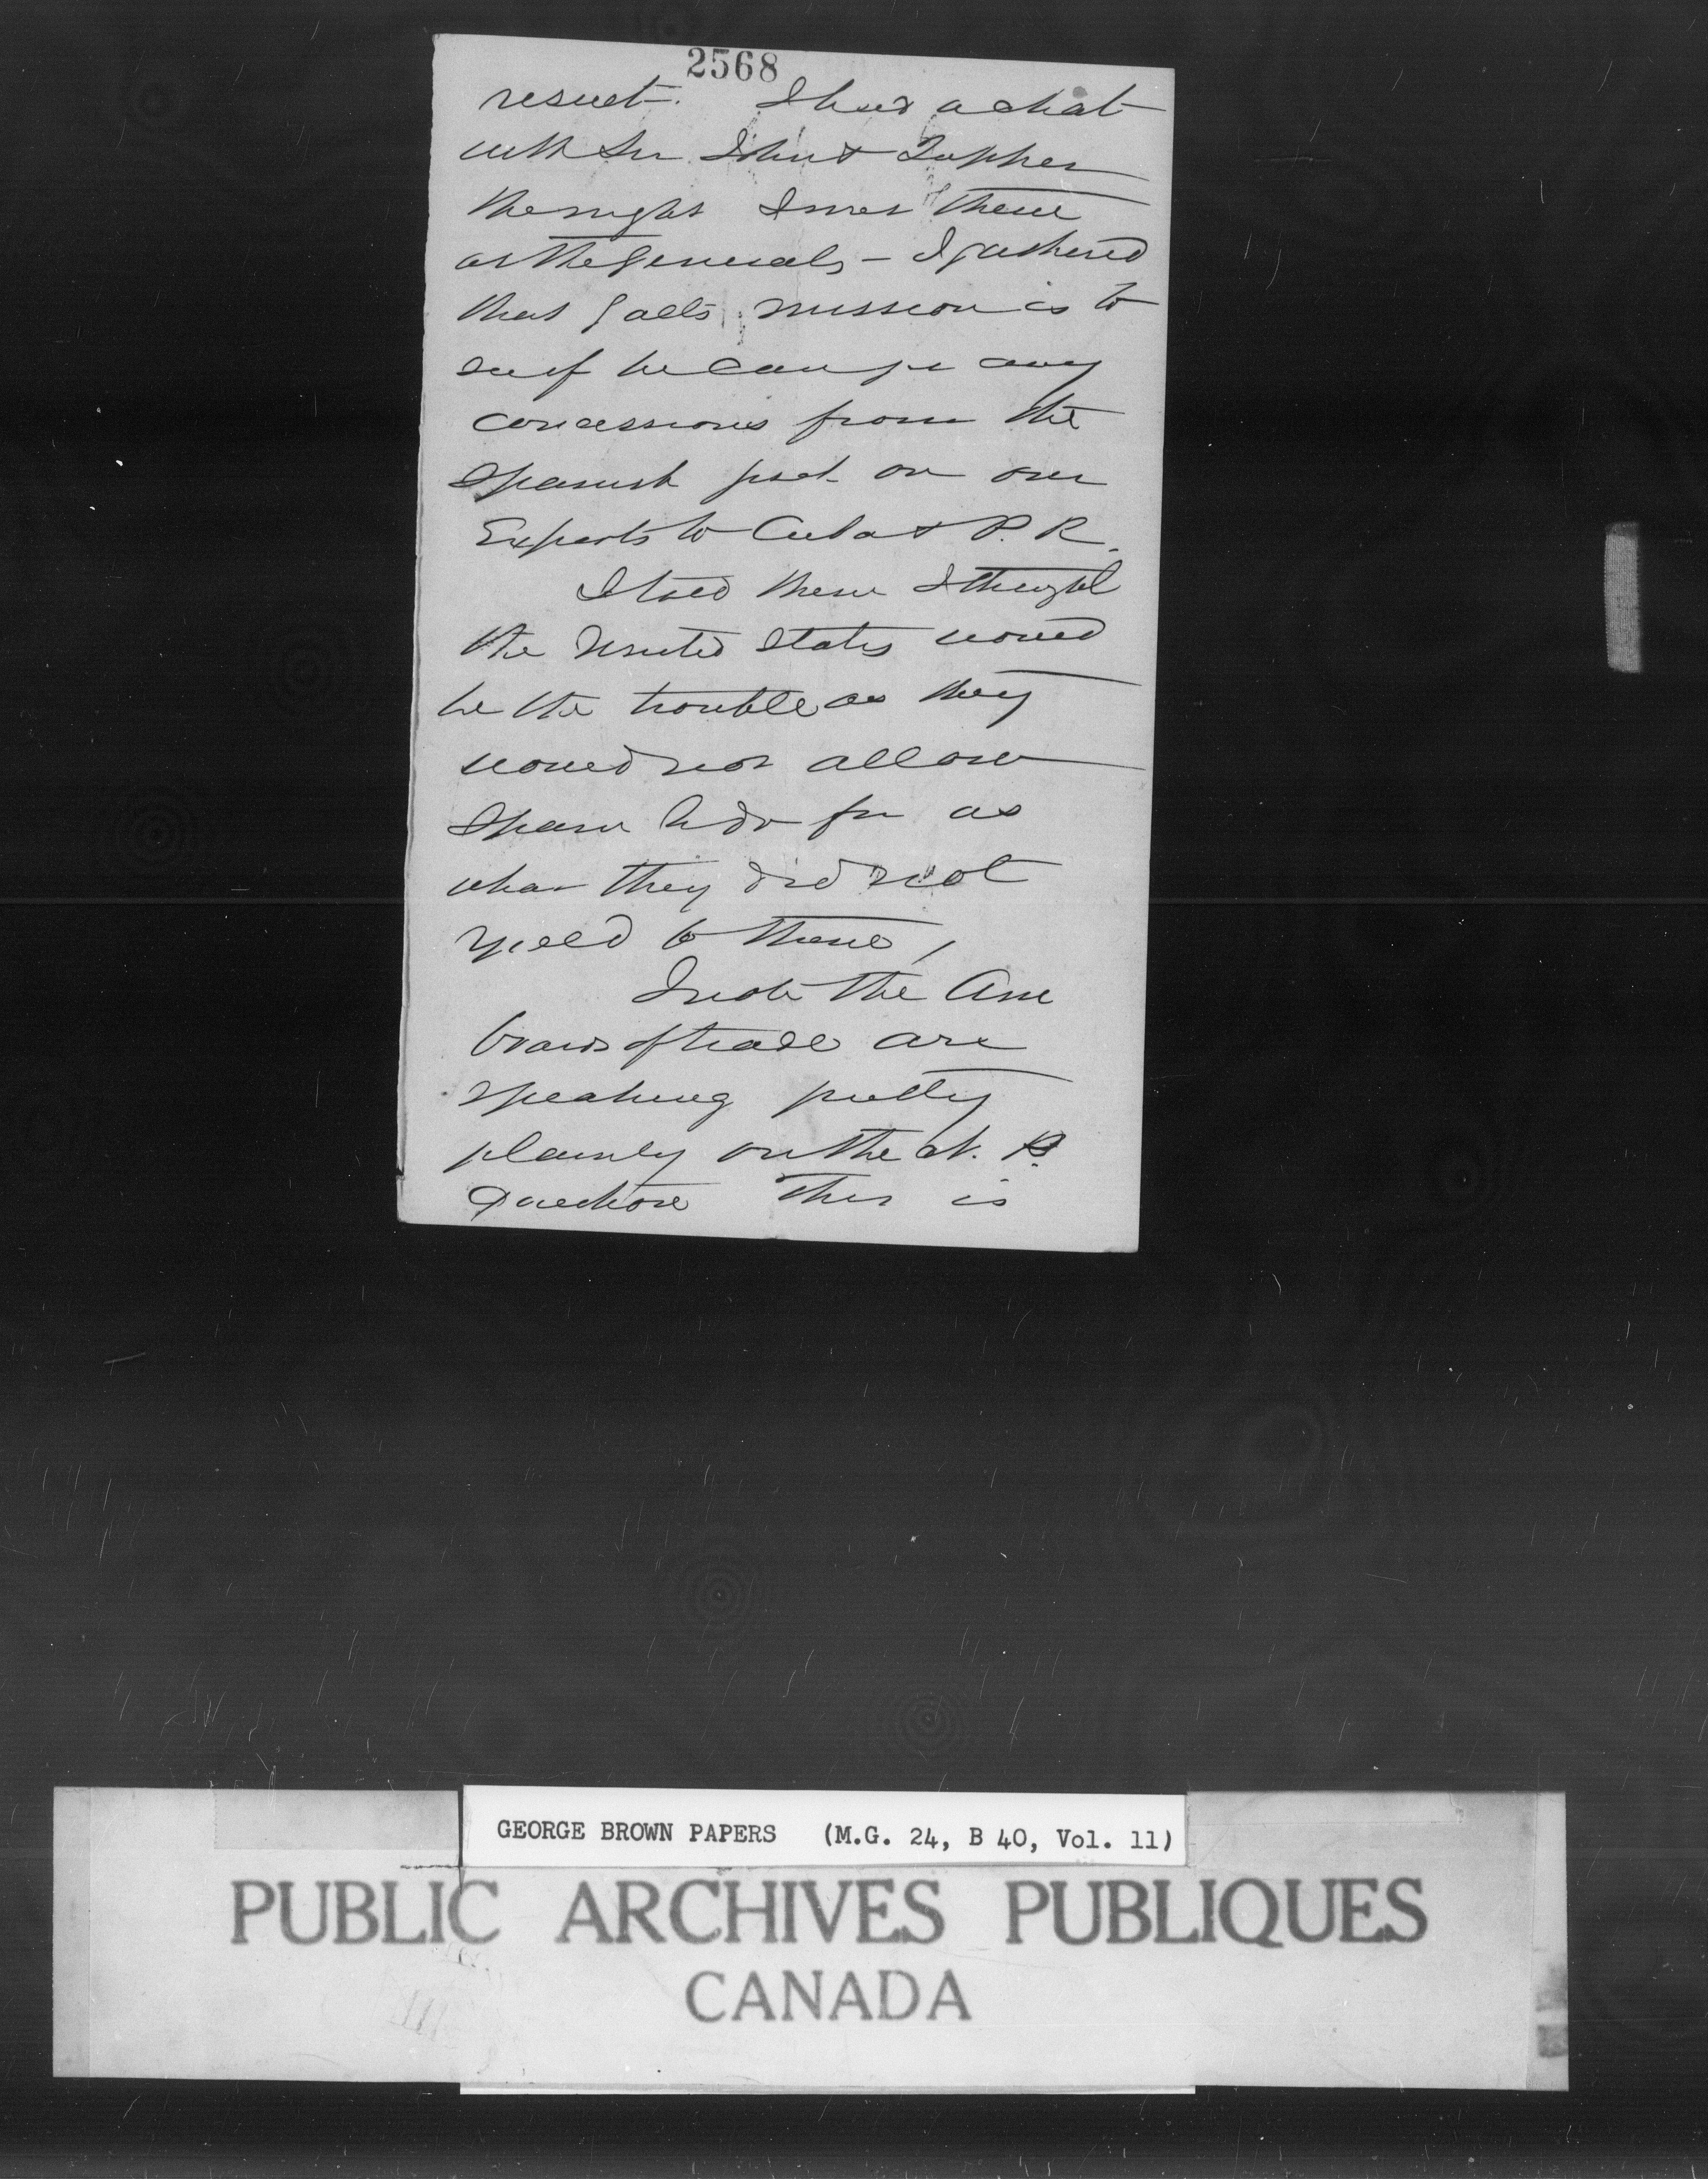 2568
result. I had a chat
with Sir John & Tupper
the night I met them
at the Generals - I gathered
that Galts mission is to
see if he can get any
concessions from the
Spanish govt on our
Exports to Cuba & P. R.
I told them I thought
the United States would
be the trouble as they
would not allow
Spain to do for us
what they did not
yield to them,
I note the Am
boards of trade are
speaking pretty
plainly on the N. P.
Question This is
GEORGE BROWN PAPERS (M.G. 24, B 40, Vol. 11)
PUBLIC ARCHIVES PUBLIQUES
CANADA